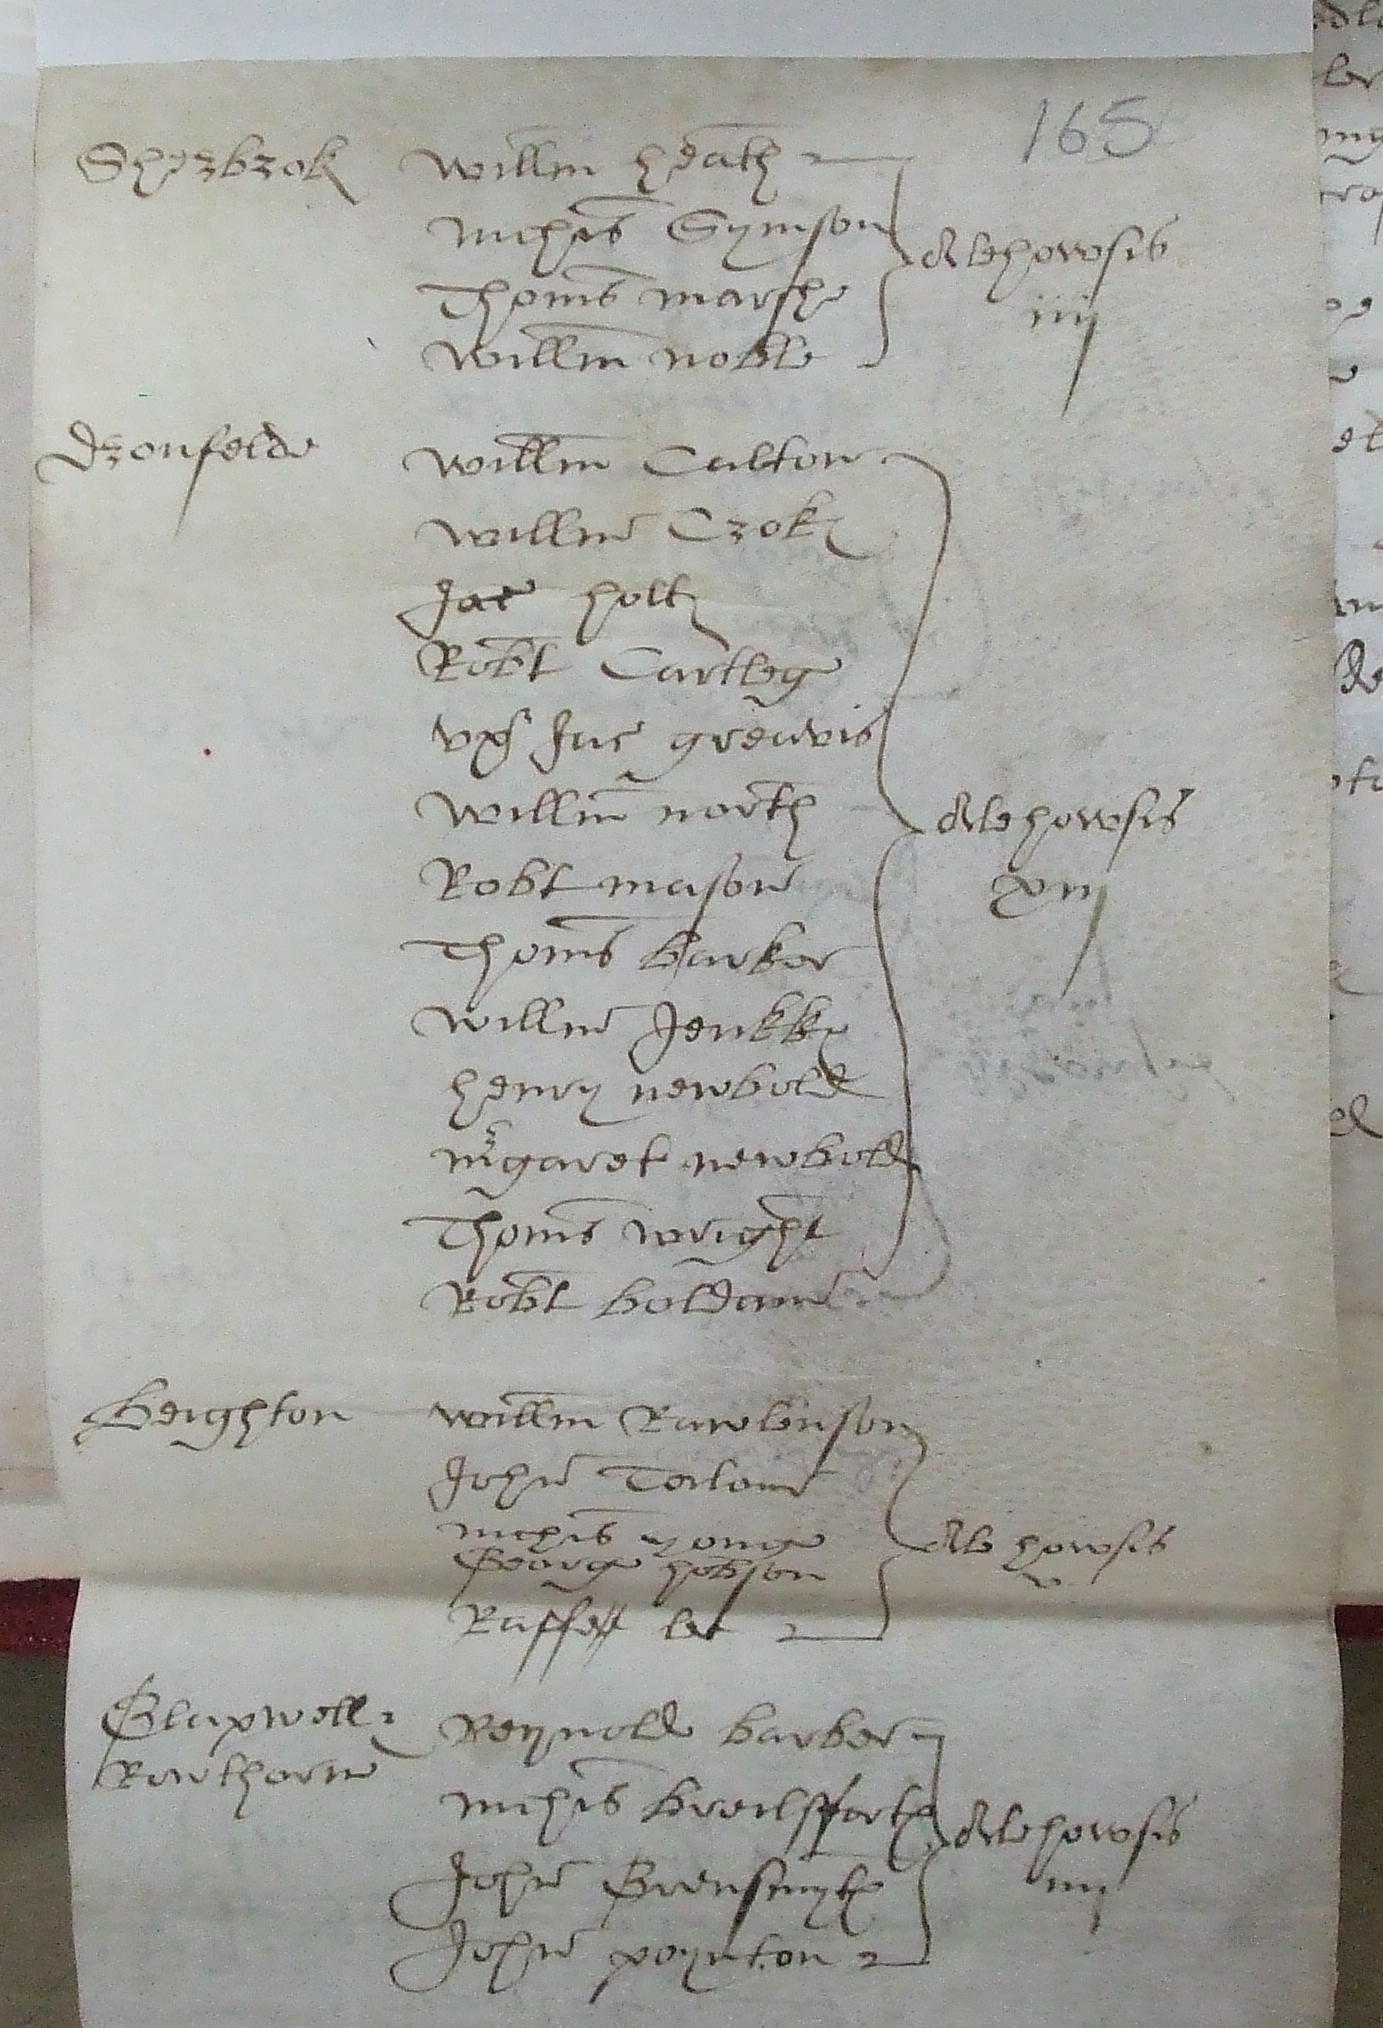 165
Sherbrok Willm heath
Nichis Symson
Thoms marshe
Willm noble
Alehowsis
iiij
Dronfelde Willm Calton
Willm Crok
Jac holt
Robt Cartleg
vx Jac greavis
Willm north
Robt mason
Thoms barker
Willm Jenkk
henry newbold
Mrgaret newbold
Thoms wright
Robt boldam
Alehowsis
xiij
Beighton Willm Rawlinson
John Tailour
Nichis yonge
George hobson
Raffe lee
Ale howsis
v
Glapwell
Rowthorne
Reynold barber
Nichis breilsforth
John Grensmyth
John poynton
Alehowsis
iiij